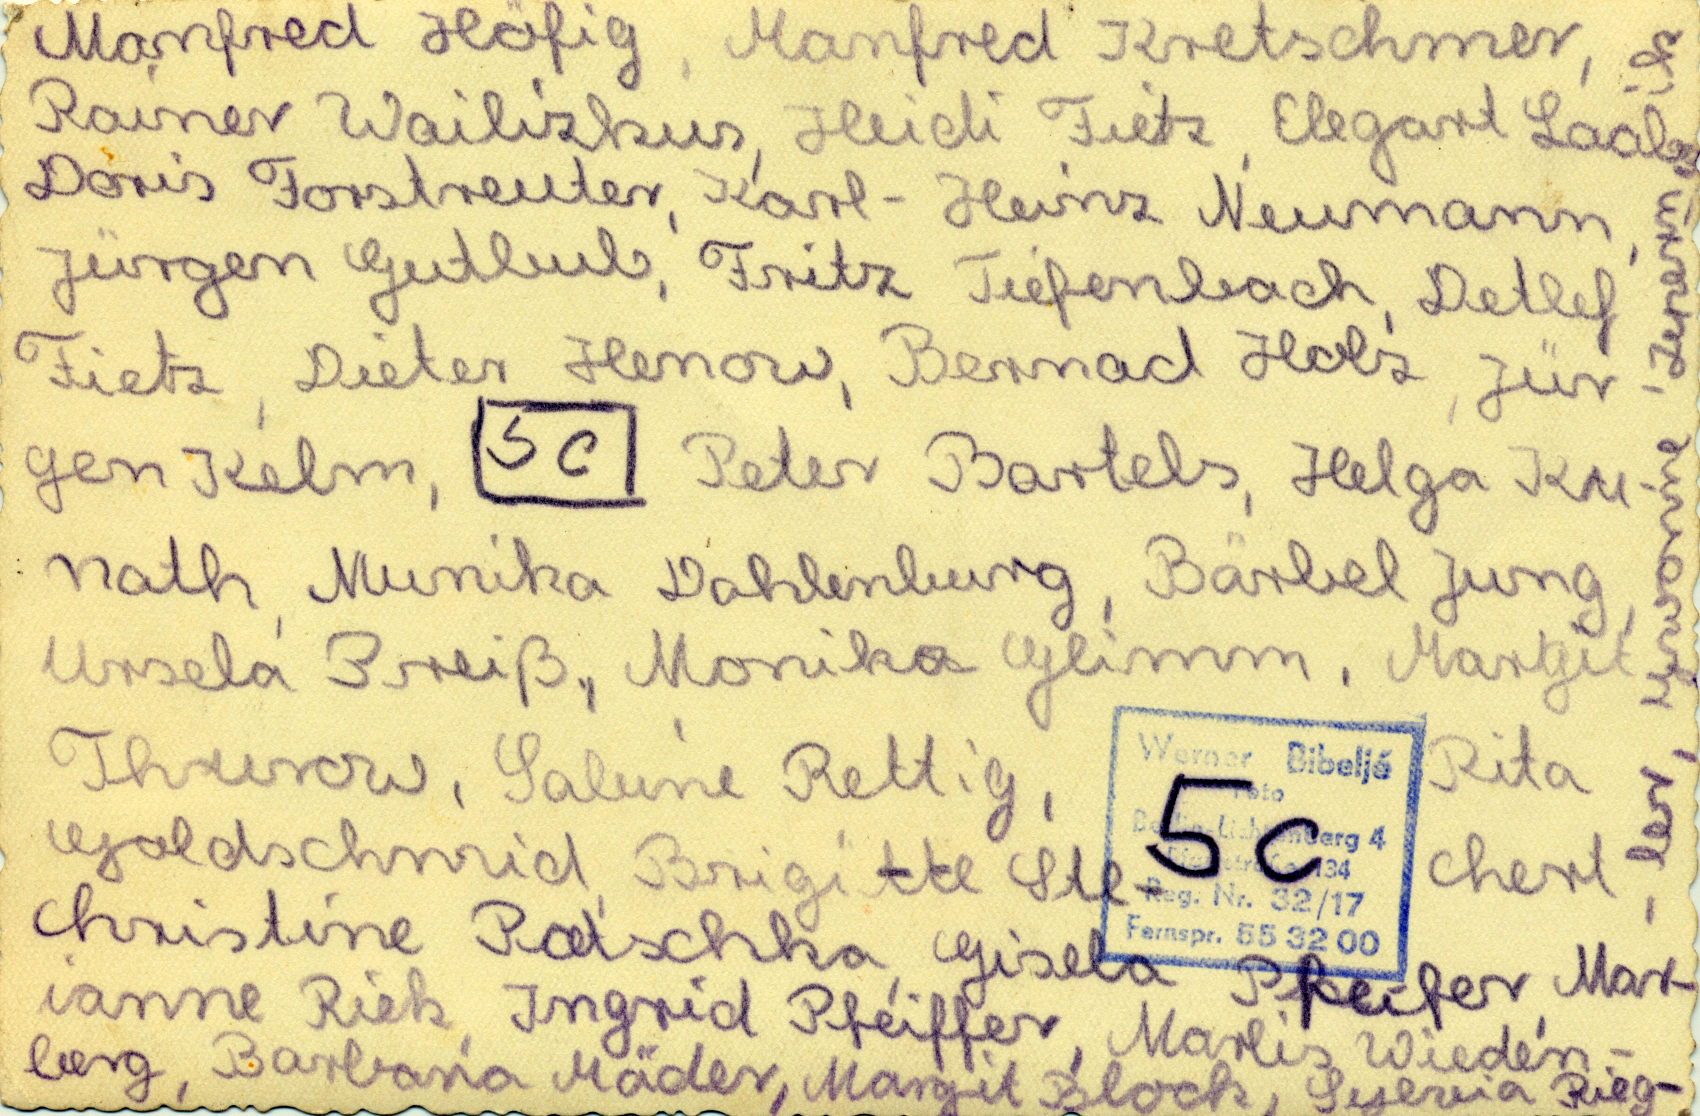 Manfred Höfig, Manfred Kretschmer,
Rainer Wailizkus, Heidi Fietz, Elegart Laabs,
Doris Forstreuter, Karl-Heinz Neumann,
Jürgen Gutlub, Fritz Tiefenbach, Detlef
Fietz, Dieter Henow, Bernad Holz, Jür-
gen Kelm, 5c Peter Bartels, Helga Ku-
nath, Munika Dahlenburg, Bärbel Jung,
Ursela Preiß, Monika Glimm, Margit
Thurow, Sabine Rettig, Rita
Goldschmid, Brigitte Ste- chert
Christine Patschka, Gisela Pfeifer, Mar-
ianne Riek, Ingrid Pfeiffer, Marlis Wieden-
berg, Barbara Mäder, Margit Block, Sylvia Rieg-
ler,
ich
Werner Bibeljé
Foto
Berlin-Lichtenberg 4
134
Reg. Nr. 32/17
Fernspr. 55 32 00
5c